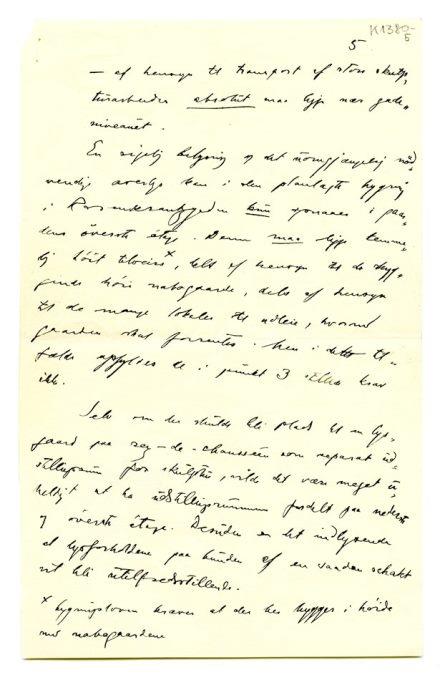 K1382-5
5
— af hensyn til transport af store skulp-
turarbeider absolut maa ligge nær gade-
niveauet.
En rigelig belysning og det uomgjængelig nød-
vendige overlys kan i den planlagte bygning
i Rosenkrantzgaden kun paa-
dens øverste etage. Denne maa ligge temme-
lig høit tilveirs x, dels af hensyn til de
høie nabogaarde, dels af hensyn
til de mange lokaler til utleie, hvorved
gaarden skal forrentes. Men i dette til-
fælde opfyldes de i punkt 3 krav
ikke.
Selv om der skulde bli plads til en lys-
gaard paa rez-de-chausséen som separat ud-
stillingsrum for skulptur, vilde det være meget u-
heldigt at ha udstillingsrummene fordelt paa nederste
og øverste etage. Desuden er det indlysende
at lysforholdene paa bunden af en saadan schakt
vil bli utilfredsstillende.
x bygningsloven kræver at der her bygges i høide
med nabogaardene